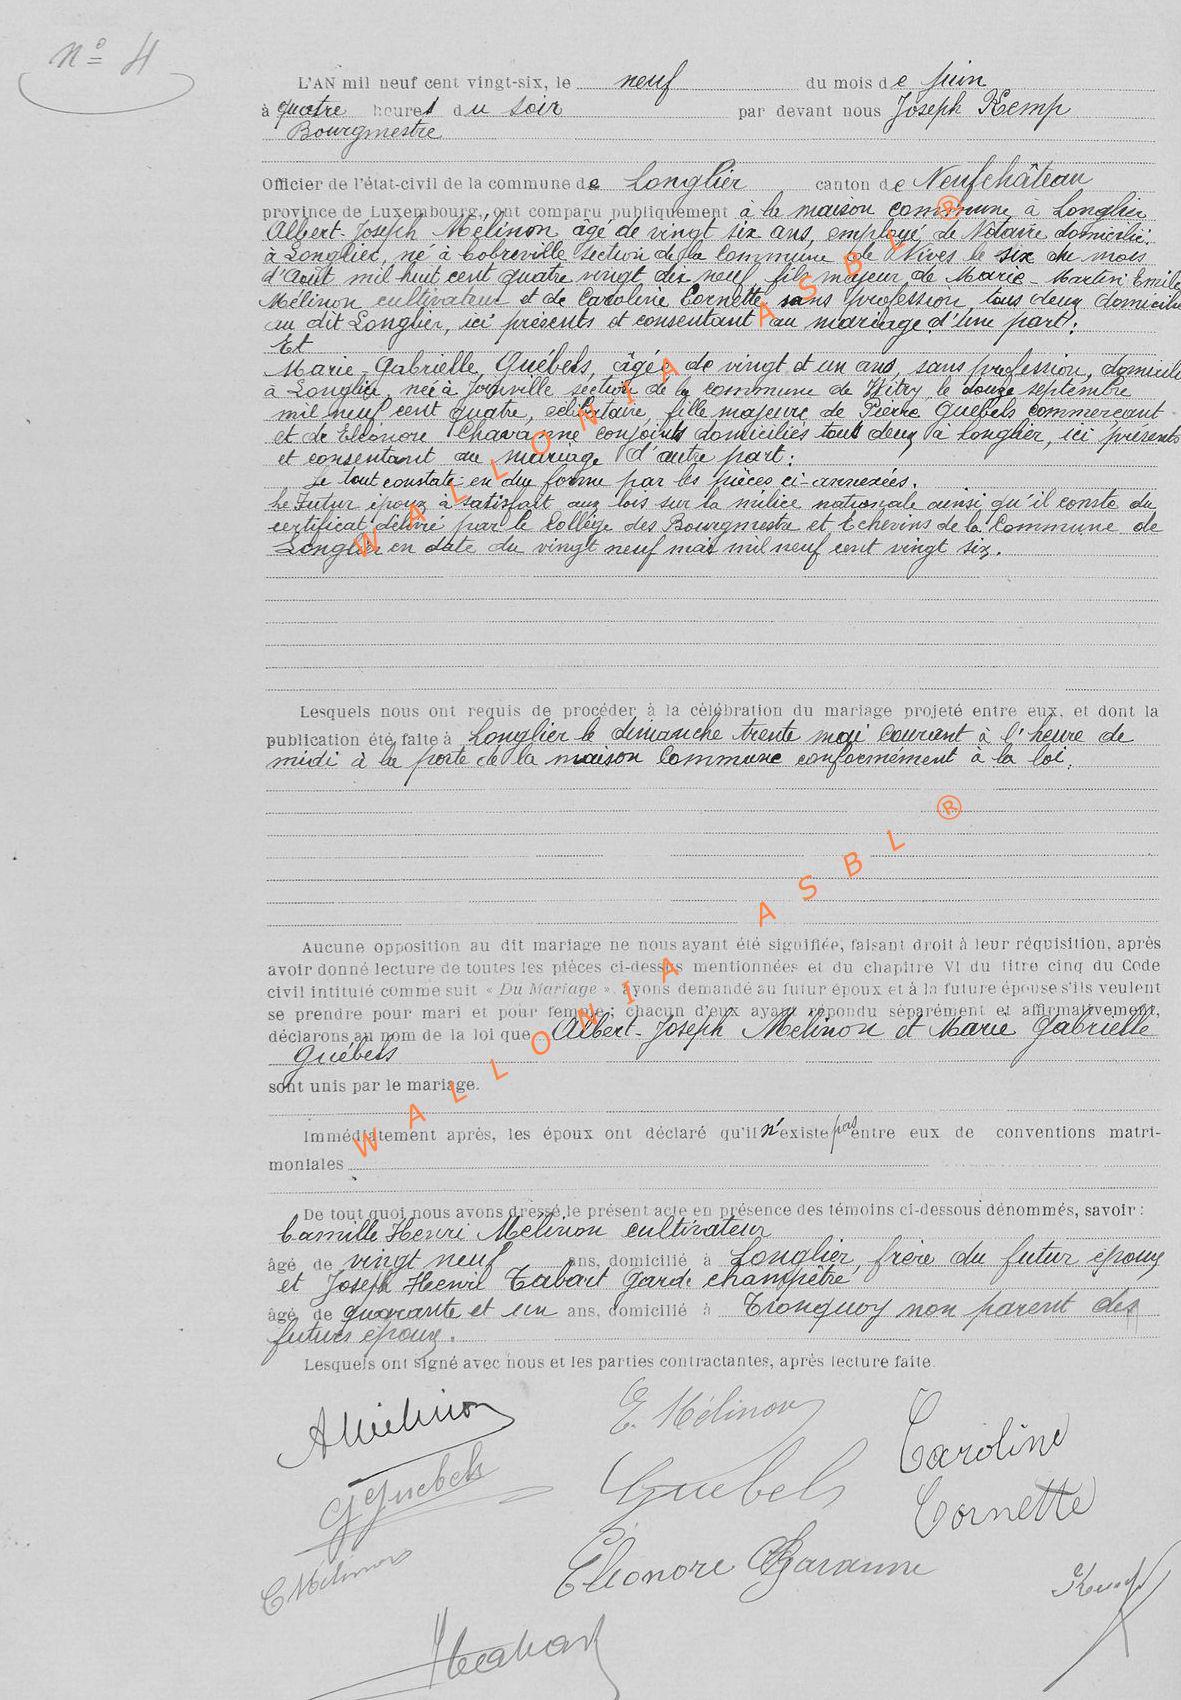 N° 4
L'AN mil neuf cent vingt-six, le neuf du mois de juin
à quatre heures du soir par devant nous Joseph Kemp
Bourgmestre
Officier de l'état-civil de la commune de Longlier canton de Neufchâteau
province de Luxembourg, ont comparu publiquement à la maison commune à Longlier
Albert-Joseph Mélinon âgé de vingt six ans, employé de Notaire domicilié
à Longlier, né à Cobreville section de la Commune de Nives le six du mois
d'Août mil huit cent quatre vingt dix neuf, fils majeur de Marie-Martin Emile
Mélinon cultivateur et de Caroline Cornette, sans profession, tous deux domiciliés
au dit Longlier, ici présents et consentant au mariage d'une part;
Et
Marie-Gabrielle Québels, âgée de vingt et un ans, sans profession, domiciliée
à Longlier, née à Juseville section de la commune de Witry, le douze septembre
mil neuf cent quatre, célibataire, fille majeure de Pierre Quebels commercant
et de Eléonore Chavanne conjoints domiciliés tous deux à Longlier, ici présents
et consentant au mariage d'autre part;
Le tout constaté en due forme par les pièces ci-annexées.
Le Futur époux à satisfait aux lois sur la milice nationale ainsi qu'il conste du
certificat délivré par le Collège des Bourgmestre et Echevins de la Commune de
Longlier en date du vingt neuf mai mil neuf cent vingt six.
Lesquels nous ont requis de procéder à la célébration du mariage projeté entre eux, et dont la
publication été faite à Longlier le dimanche trente mai courant à l'heure de
midi à la porte de la maison Commune conformément à la loi.
Aucune opposition au dit mariage ne nous ayant été signifiée, faisant droit à leur réquisition, après
avoir donné lecture de toutes les pièces ci-dessus mentionnées et du chapitre VI du titre cinq du Code
civil intitulé comme suit « Du Mariage », avons demandé au futur époux et à la future épouse s'ils veulent
se prendre pour mari et pour femme; chacun d'eux ayant répondu séparément et affirmativement,
déclarons au nom de la loi que Albert-Joseph Mélinon et Marie Gabrielle
Québels
sont unis par le mariage.
Immédiatement après, les époux ont déclaré qu'il n'existe pas entre eux de conventions matri-
moniales
De tout quoi nous avons dressé le présent acte en présence des témoins ci-dessous dénommés, savoir:
Camille Henri Mélinon cultivateur
âgé de vingt neuf ans, domicilié à Longlier, frère du futur époux
et Joseph Henri Tabart Garde champêtre
âgé de quarante et un ans, domicilié à Tronquoy non parent des
futurs époux.
Lesquels ont signé avec nous et les parties contractantes, après lecture faite.
A Mélinon E. Mélinon Caroline
G Guebels Guebels Cornette
C Mélinon Eléonore Chavanne Kemp
WALLONIA ASBL ®
WALLONIA ASBL ®